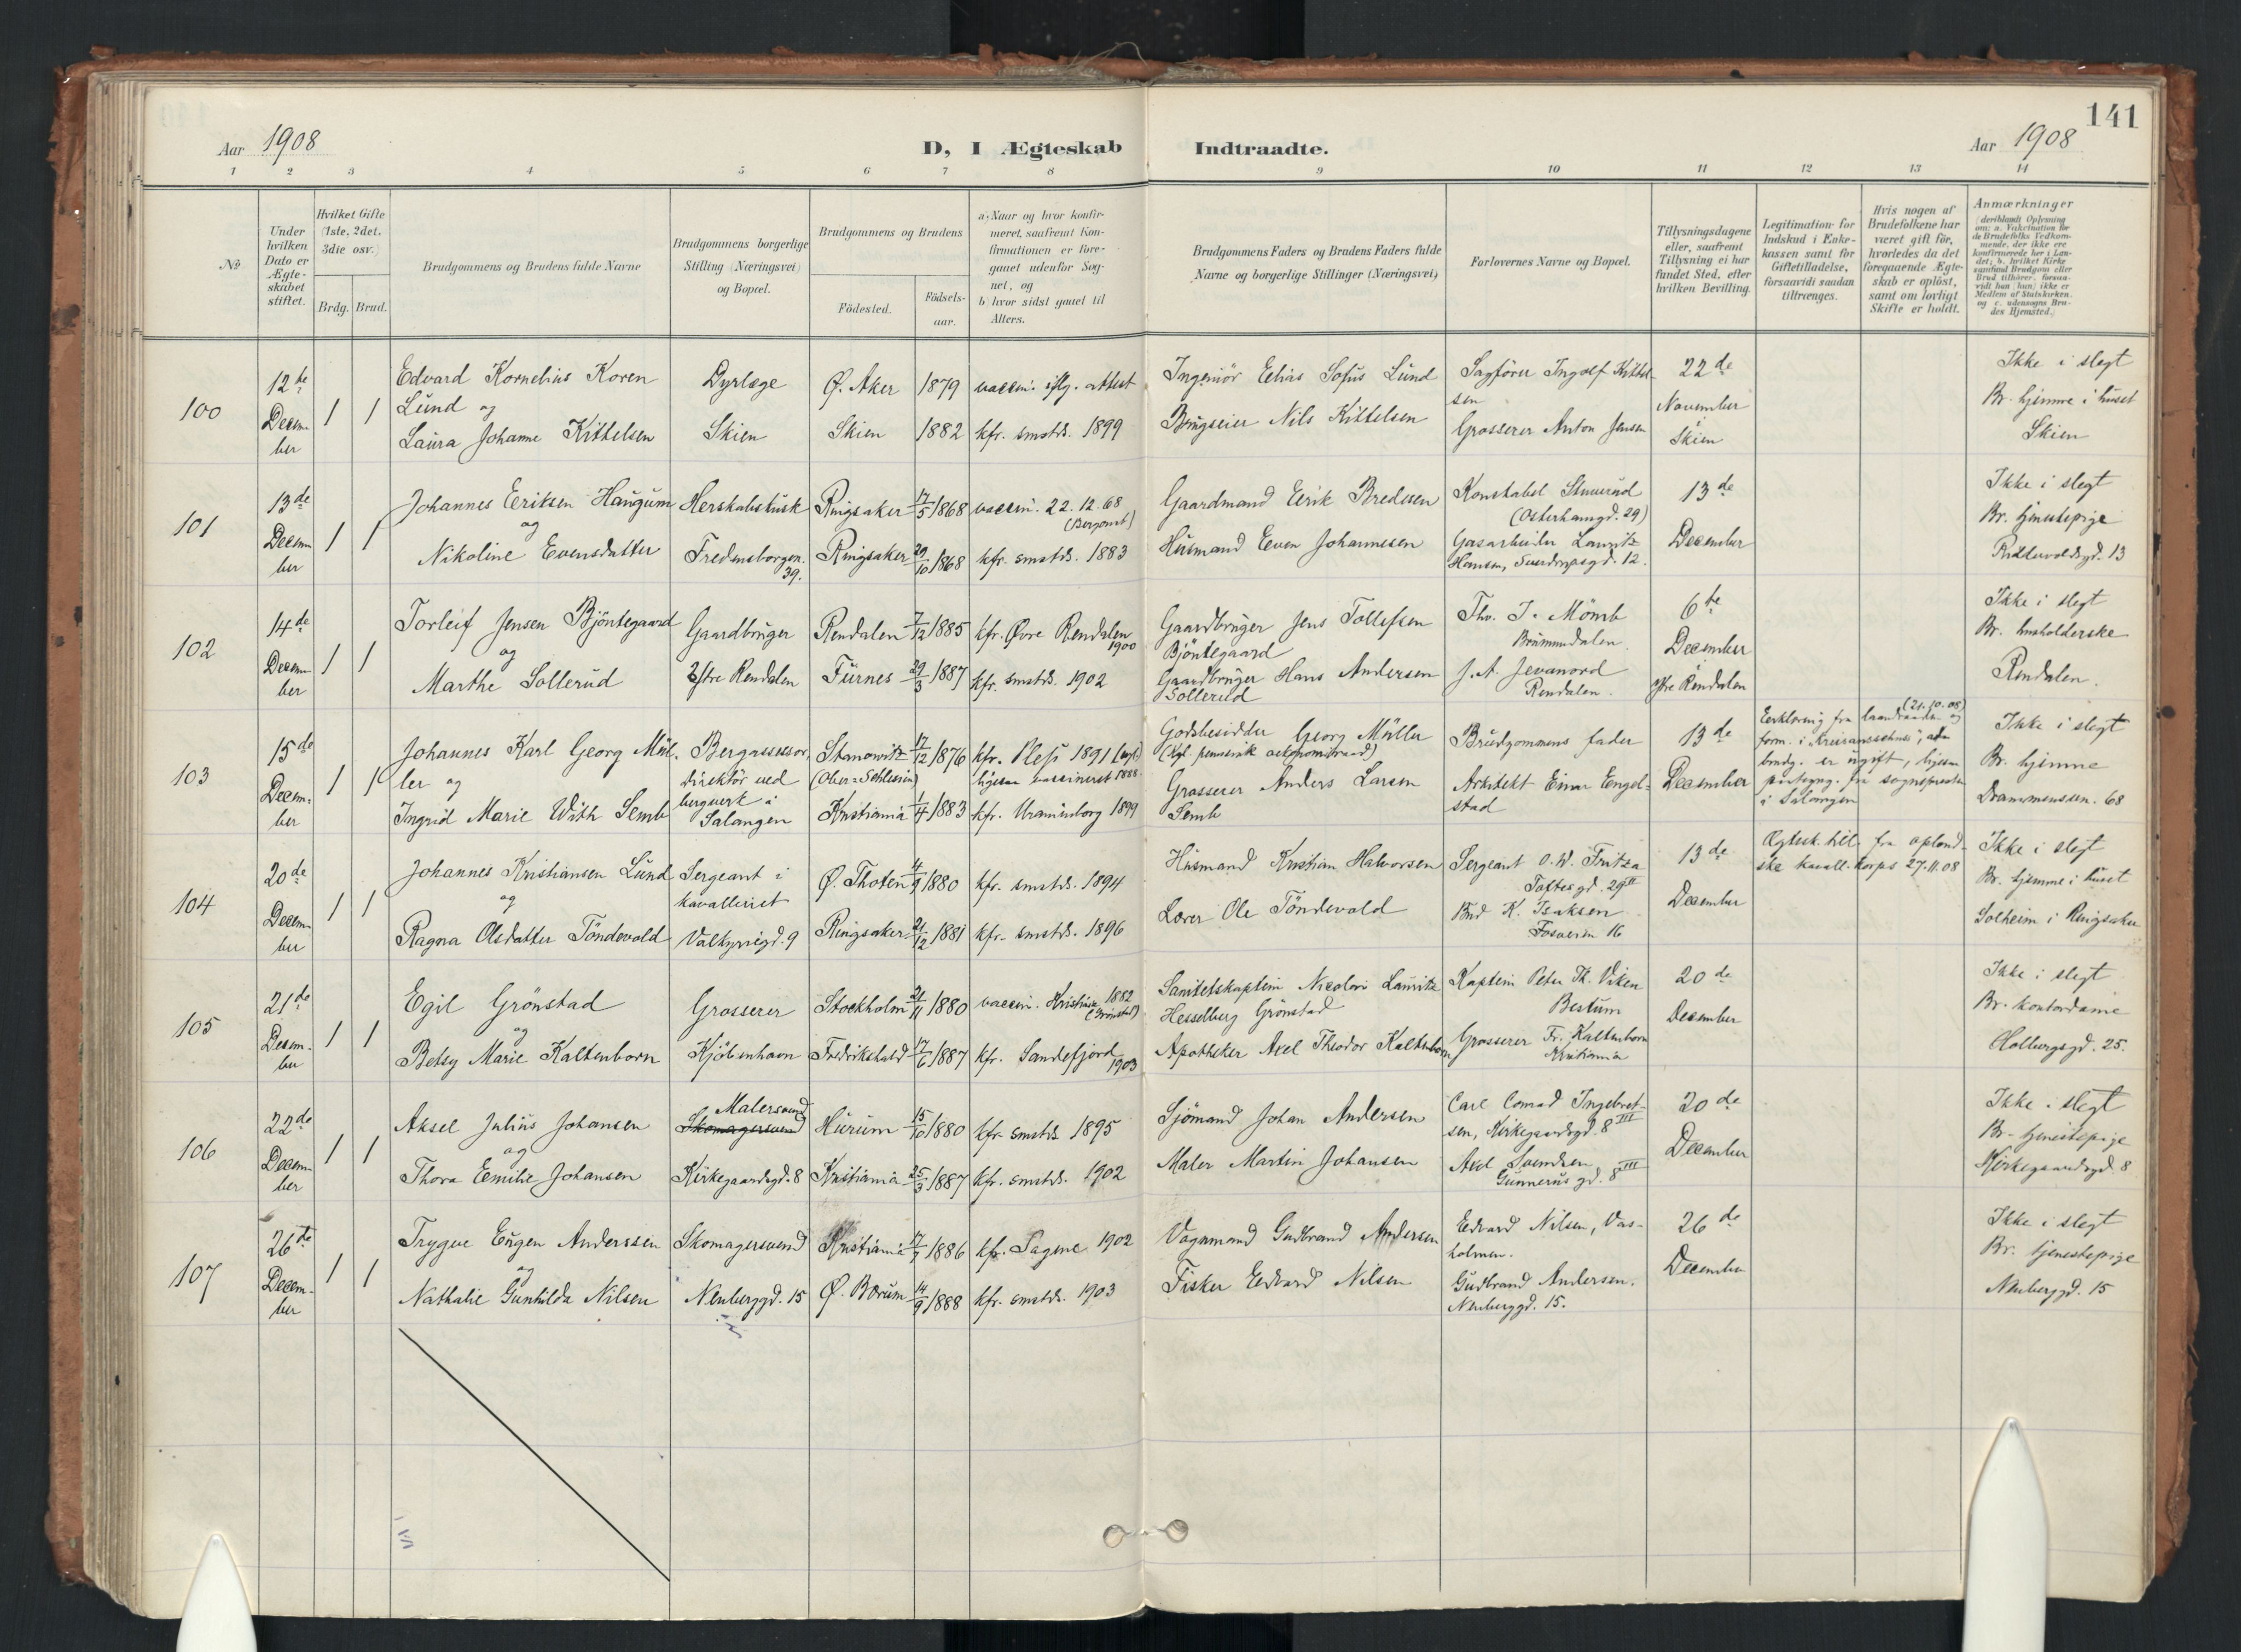 141
Aar 1908
D, I Ægteskab Indtraadte.
Aar 1908
1 2 3 4 5 6 7 8 9 10 11 12 13 14
No
Under
hvilken
Dato er
Ægte-
skabet
stiftet.
Hvilket Gifte
(1ste, 2det,
3die osv.)
Brdg. Brud.
Brudgommens og Brudens fulde Navne
Brudgommens borgerlige
Stilling (Næringsvei)
og Bopæl.
Brudgommens og Brudens
Födested.
Födsels-
aar.
a) Naar og hvor konfir-
meret, saafremt Kon-
firmationen er fore-
gaaet udenfor Sog-
net, og
b) hvor sidst gaaet til
Alters.
Brudgommens Faders og Brudens Faders fulde
Navne og borgerlige Stillinger (Næringsvei)
Forlovernes Navne og Bopæl.
Tillysningsdagene
eller, saafremt
Tillysning ei har
fundet Sted, efter
hvilken Bevilling.
Legitimation for
Indskud i Enke-
kassen samt for
Giftetilladelse,
forsaavidt saadan
tiltrænges.
Hvis nogen af
Brudefolkene har
været gift för,
hvorledes da det
foregaaende Ægte-
skab er oplöst,
samt om lovligt
Skifte er holdt.
Anmærkninger
(deriblandt Oplysning
om: a. Vakcination for
de Brudefolks Vedkom-
mende, der ikke ere
konfirmerede her i Lan-
det; b. hvilket Kirke-
samfund Brudgom eller
Brud tilhörer, forsaa-
vidt han (hun) ikke er
Medlem af Statskirken,
og c. udensogns Bru-
des Hjemsted.)
100
12te
Decem-
ber
1 1
Edvard Kornelius Koren
Lund og
Laura Johanne Kittelsen
Dyrlæge
Skien
Ø. Aker 1879
Skien 1882
vaccin. iflg. attest
kfr. smstds. 1899
Ingeniör Elias Sofus Lund
Brugseier Nils Kittelsen
Sagförer Ingolf Kittel-
sen
Grosserer Anton Jensen
22de
November
Skien
Ikke i slegt
Br. hjemme i huset
Skien
101
13de
Decem
ber
1 1
Johannes Eriksen Haugum
og
Nikoline Evensdatter
Herskabskusk
Fredensborgvn.
39.
Ringsaker 17/5 1868
Ringsaker 29/10 1868
vaccin. 22.12.68
kfr. smstds. 1883
Gaardmand Erik Bredesen
Husmand Even Johannesen
Konstabel
(Osterhausgd. 29)
Gasarbeider Lauritz
Hansen, Sverdrupsgd. 12.
13de
December
Ikke i slegt
Br. tjenestepige
Pidtervoldsgd. 13
102
14de
Decem-
ber
1 1
Torleif Jensen Bjöntegaard
og
Marthe Sollerud
Gaardbruger
Rendalen
Rendalen 7/12 1885
Furnes 29/3 1887
kfr. Øvre Rendalen
1900
kfr. smstds. 1902
Gaardbruger Jens Tollefsen
Bjöntegaard
Gaardbruger Hans Andersen
Sollerud
Thv. J. Mömb
Brumunddalen.
J. A. Jevanord
Rendalen.
6te
December
Øfre Rendalen
Ikke i slegt
Br. husholderske
Rendalen.
103
15de
Decem-
ber
1 1
Johannes Karl Georg Mül-
ler og
Ingrid Marie With Semb
Bergassessor,
direktör ved
bergverk i
Salangen
Stanowitz 17/12 1876
(Ober-Schlesien)
Kristiania 1/4 1883
kfr. Pless 1891
vaccineret 1888
kfr. Uranienborg 1899
Godsbesidder Georg Müller
Grosserer Anders Larsen
Semb
Brudgommens fader
Arkitekt Einar Engel-
stad
13de
December
(21.10.08)
Erklæring fra Landraadn og
form. i
brudg. er ugift, ligesaa
fra sognepresten
i Salangen
Ikke i slegt
Br. hjemme
Drammensvn. 68
104
20de
Decem-
ber
1 1
Johannes Kristiansen Lund
og
Ragna Olsdatter Töndevold
Sergeant i
kavalleriet
Valkyriegd. 9
Ø. Thoten 4/9 1880
Ringsaker 21/12 1881
kfr. smstds. 1894
kfr. smstds. 1896
Husmand Kristian Halvorsen
Lærer Ole Töndevold
Sergeant O. W. Fritza
Toftesgd. 29 II
Bud K. Isaksen
Fosveien 16
13de
December
Ægtesk. till. fra opland-
ske kavall. korps 27.11.08
Ikke i slegt
Br. hjemme i huset
Solheim i Ringsaker
105
21de
Decem-
ber
1 1
Egil Grönstad
og
Betsy Marie Kaltenborn
Grosserer
Kjöbenhavn
Stockholm 21/11 1880
Fredrikshald 17/6 1887
vaccin. Kristiania 1882
(Grönstad)
kfr. Sandefjord
1903
Sanitetskaptein Nicolai Lauritz
Hesselberg Grönstad
Apotheker Axel Theodor Kaltenborn
Kaptein Peter Th. Viken
Bestum
Grosserer Fr. Kaltenborn
Kristiania
20de
December
Ikke i slegt
Br. kontordame
Holbergsgd. 25.
106
22de
Decem-
ber
1 1
Aksel Julius Johansen
og
Thora Emilie Johansen
Malersvend
Skomagersvend
Kirkegaardsgd. 8
Hurum 15/10 1880
Kristiania 25/3 1887
kfr. smstds 1895
kfr. smstds. 1902
Sjömand Johan Andersen
Maler Martin Johansen
Carl Conrad Ingebret-
sen, Kirkegaardsgd. 8 III
Axel Svendsen
Gunnerus gd. 8 III
20de
December
Ikke i slegt
Br. tjenestepige
Kirkegaardsgd. 8
107
26de
Decem-
ber
1 1
Trygve Eugen Anderssen
og
Nathalie Gunhilda Nilsen
Skomagersvend
Neuberggd. 15
Kristiania 17/7 1886
Ø. Bærum 14/9 1888
kfr. Sagene 1902
kfr. smstds. 1903
Vognmand Gudbrand Andersen
Fisker Edvard Nilsen
Edvard Nilsen, Vas-
holmen.
Gudbrand Andersen.
Neuberggd. 15.
26de
December
Ikke i slegt
Br. tjenestepige
Neuberggd. 15